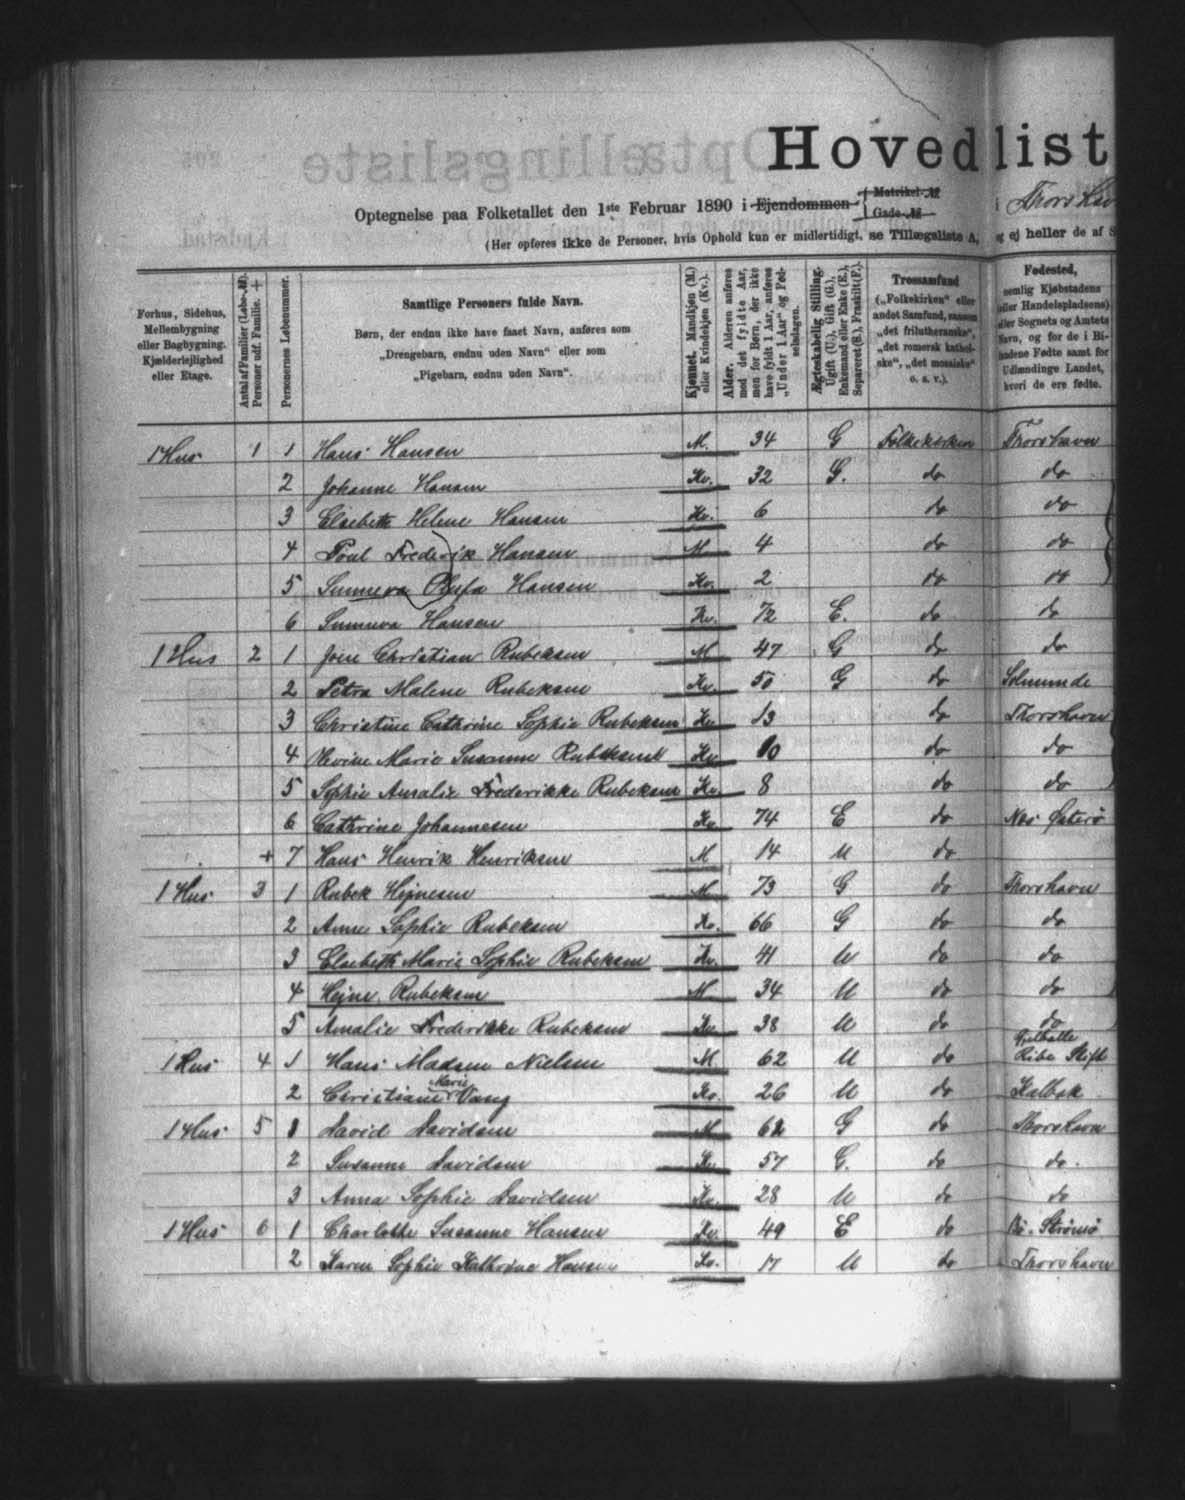 Hovedlist
Optegnelse paa Folketallet den 1ste Februar 1890 i Ejendommen { Matrikel-№ Gade-№ i Thorshav
(Her opføres ikke de Personer, hvis Ophold kun er midlertidigt, se Tillægsliste A, og ej heller de af S
Forhus, Sidehus, Mellembygning eller Bagbygning. Kjælderlejlighed eller Etage.
Antal af Familier (Løbe-№). Personer udf. Familie. +
Personernes Løbenummer.
Samtlige Personers fulde Navn.
Børn, der endnu ikke have faaet Navn, anføres som
„Drengebarn, endnu uden Navn“ eller som
„Pigebarn, endnu uden Navn“.
Kjønnet. Mandkjøn (M.) eller Kvindekjøn (Kv.).
Alder. Alderen anføres med det fyldte Aar, men for Børn, der ikke have fyldt 1 Aar, anføres „Under 1 Aar“ og Fødselsdagen.
Ægteskabelig Stilling. Ugift (U.), Gift (G.), Enkemand eller Enke (E.), Separeret (S.), Fraskilt (F.).
Trossamfund („Folkekirken“ eller andet Samfund, saasom „det frilutheranske“, „det romersk katholske“, „det mosaiske“ o. s. v.).
Fødested, nemlig Kjøbstadens eller Handelspladsens) eller Sognets og Amtets Navn, og for de i Bilandene Fødte samt for Udlændinge Landet, hvori de ere fødte.
1 Hus 1 1 Hans Hansen M. 34 G Folkekirken Thorshavn
2 Johanne Hansen Kv. 32 G. do do
3 Elsebeth Helene Hansen Kv. 6 do do
4 Poul Frederik Hansen M 4 do do
5 Sunneva Olufa Hansen Kv. 2 do do
6 Sunneva Hansen Kv. 72 E. do do
1 Hus 2 1 Joen Christian Rubeksen M 47 G do do
2 Petra Malene Rubeksen Kv. 50 G do Solmunde
3 Christine Cathrine Sophie Rubeksen Kv 13 do Thorshavn
4 Marie Susanne Rubeksen Kv 10 do do
5 Sophie Amalie Frederikke Rubeksen Kv. 8 do do
6 Cathrine Johannesen Kv 74 E do Næs Østerø
+ 7 Hans Henrik Henriksen M 14 U do
1 Hus 3 1 Rubek Hejnesen M 73 G do Thorshavn
2 Anne Sophie Rubeksen Kv. 66 G do do
3 Elsebeth Marie Sophie Rubeksen Kv. 41 U do do
4 Hejne Rubeksen M 34 U do do
5 Amalie Frederikke Rubeksen Kv 38 U do do
1 Hus 4 1 Hans Madsen Nielsen M 62 U do Ribe Stift
2 Christiane Marie Vang Kv. 26 U do Kalbak
1 Hus 5 1 David Davidsen M 62 G do Thorshavn
2 Susanne Davidsen Kv 57 G. do do.
3 Anna Sophie Davidsen Kv. 28 U do do
1 Hus 6 1 Charlotte Susanne Hansen Kv. 49 E do Strømø
2 Karen Sophie Kathrine Hansen Kv. 17 U do Thorshavn